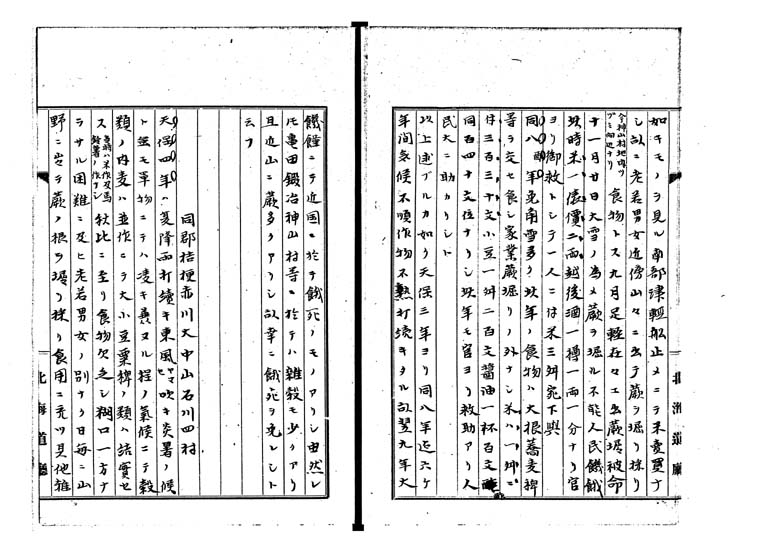 如キモノヲ見ル南部津輕船止メニテ米賣買ナ
シ故ニ老若男女近傍山々ニ出テ蕨ヲ堀リ採リ
今神山村地内ヲ
アミ初近ナリ
食物トス九月足輕在々エ出蕨堀被命
十一月廿日大雪ノ為メ蕨ヲ堀ル不能人民饑餓
此時米一俵價二両越後酒一樽一両一分ナリ官
ヨリ御救トシテ一人ニ付米三舛宛下與
同八酉年免南雪多ク此年ノ食物ハ大根蕎麦稗
等ヲ交セ食シ家業蕨堀リノ外ナシ米ハ一舛ニ
付三百三十文小豆一舛二百文醬油一杯百文
同百四十文位ナリシ此年モ官ヨリ救助アリ人
民大ニ助カリシト
以上述ブルカ如ク天保三年ヨリ同八年迄六ケ
年間氣候不順作物不熟打続キタル故翌九年大
饑饉ニテ近国ニ於テ餓死ノモノアリシ由然レ
𪜈亀田鍛冶神山村等ニ於テハ雜穀モ少クアリ
且近山ニ蕨多クアリシ故幸ニ餓死ヲ免レシト
云フ
同郡桔梗赤川大中山石川四村
天保四年ハ夏降雨打続キ東風ヤマセ吹キ炎暑ノ候
ト雖モ単物ニテハ凌キ兼ヌル程ノ氣候ニテ穀
類ノ内麦ハ並作ニテ大小豆粟稗ノ類ハ結實セ
ス
當時ハ米作及馬
鈴薯ノ作ナシ
秋比ニ至リ食物欠乏シ糊口一方ナ
ラサル困難ニ及ヒ老若男女ノ別ナク日毎ニ山
野ニ出テ蕨ノ根ヲ堀リ採リ食用ニ充ツ其他雜
北海道廳
北海道廳